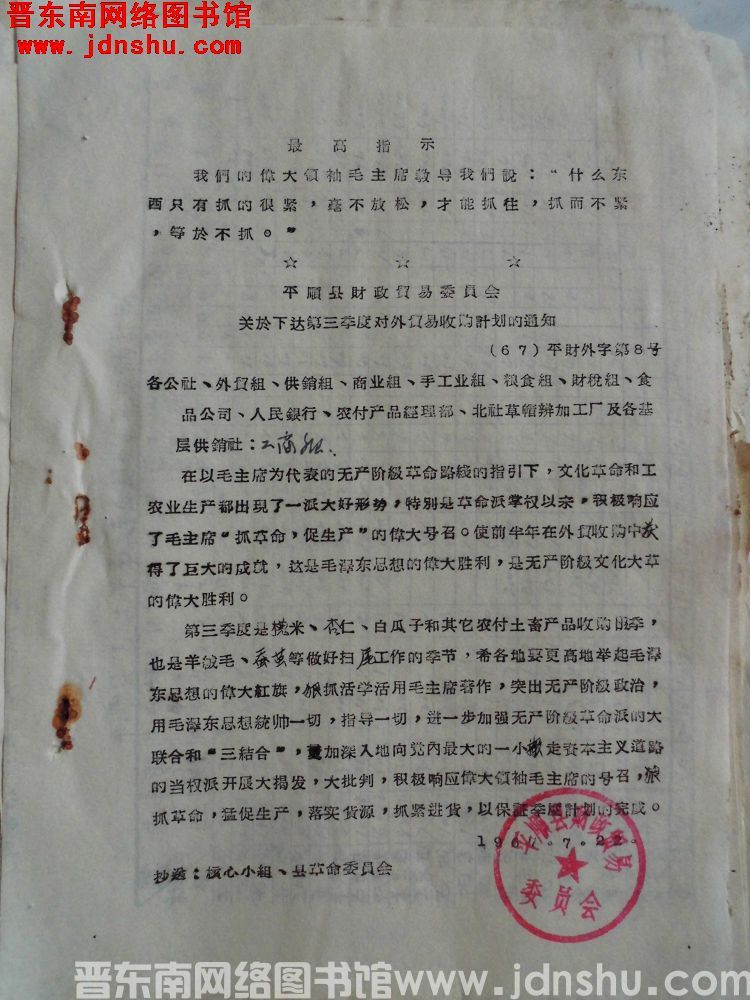 晋东南网络图书馆
www.jdnshu.com
最高指示
我們的偉大領袖毛主席教导我們說：“什么东
西只有抓的很紧，毫不放松，才能抓住，抓而不紧
，等於不抓。”
☆ ☆ ☆
平順县財政貿易委員会
关於下达第三季度对外貿易收购計划的通知
（67）平財外字第8号
各公社、外貿組、供銷組、商业組、手工业組、粮食組、財稅組、食
品公司、人民銀行、农付产品經理部、北社草帽辫加工厂及各基
层供銷社：工商組、
在以毛主席为代表的无产阶級革命路綫的指引下，文化革命和工
农业生产都出現了一派大好形势，特別是革命派掌权以来，积极响应
了毛主席“抓革命，促生产”的偉大号召。使前半年在外貿收购中获
得了巨大的成就，这是毛澤东思想的偉大胜利，是无产阶級文化大革
的偉大胜利。
第三季度是槐米、杏仁、白瓜子和其它农付土畜产品收购旺季，
也是羊絨毛、蚕茧等做好扫尾工作的季节，希各地要更高地举起毛澤
东思想的偉大紅旗，狠抓活学活用毛主席著作，突出无产阶級政治，
用毛澤东思想統帅一切，指导一切，进一步加强无产阶級革命派的大
联合和“三結合”，更加深入地向党內最大的一小撮走資本主义道路
的当权派开展大揭发，大批判，积极响应偉大領袖毛主席的号召，狠
抓革命，猛促生产，落实貨源，抓紧进貨，以保証季度計划的完成。
196 .7.22.
平順县財政貿易
委員会
抄送：核心小組、县革命委員会
晋东南网络图书馆www.jdnshu.com